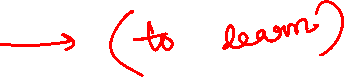 → (to learn)